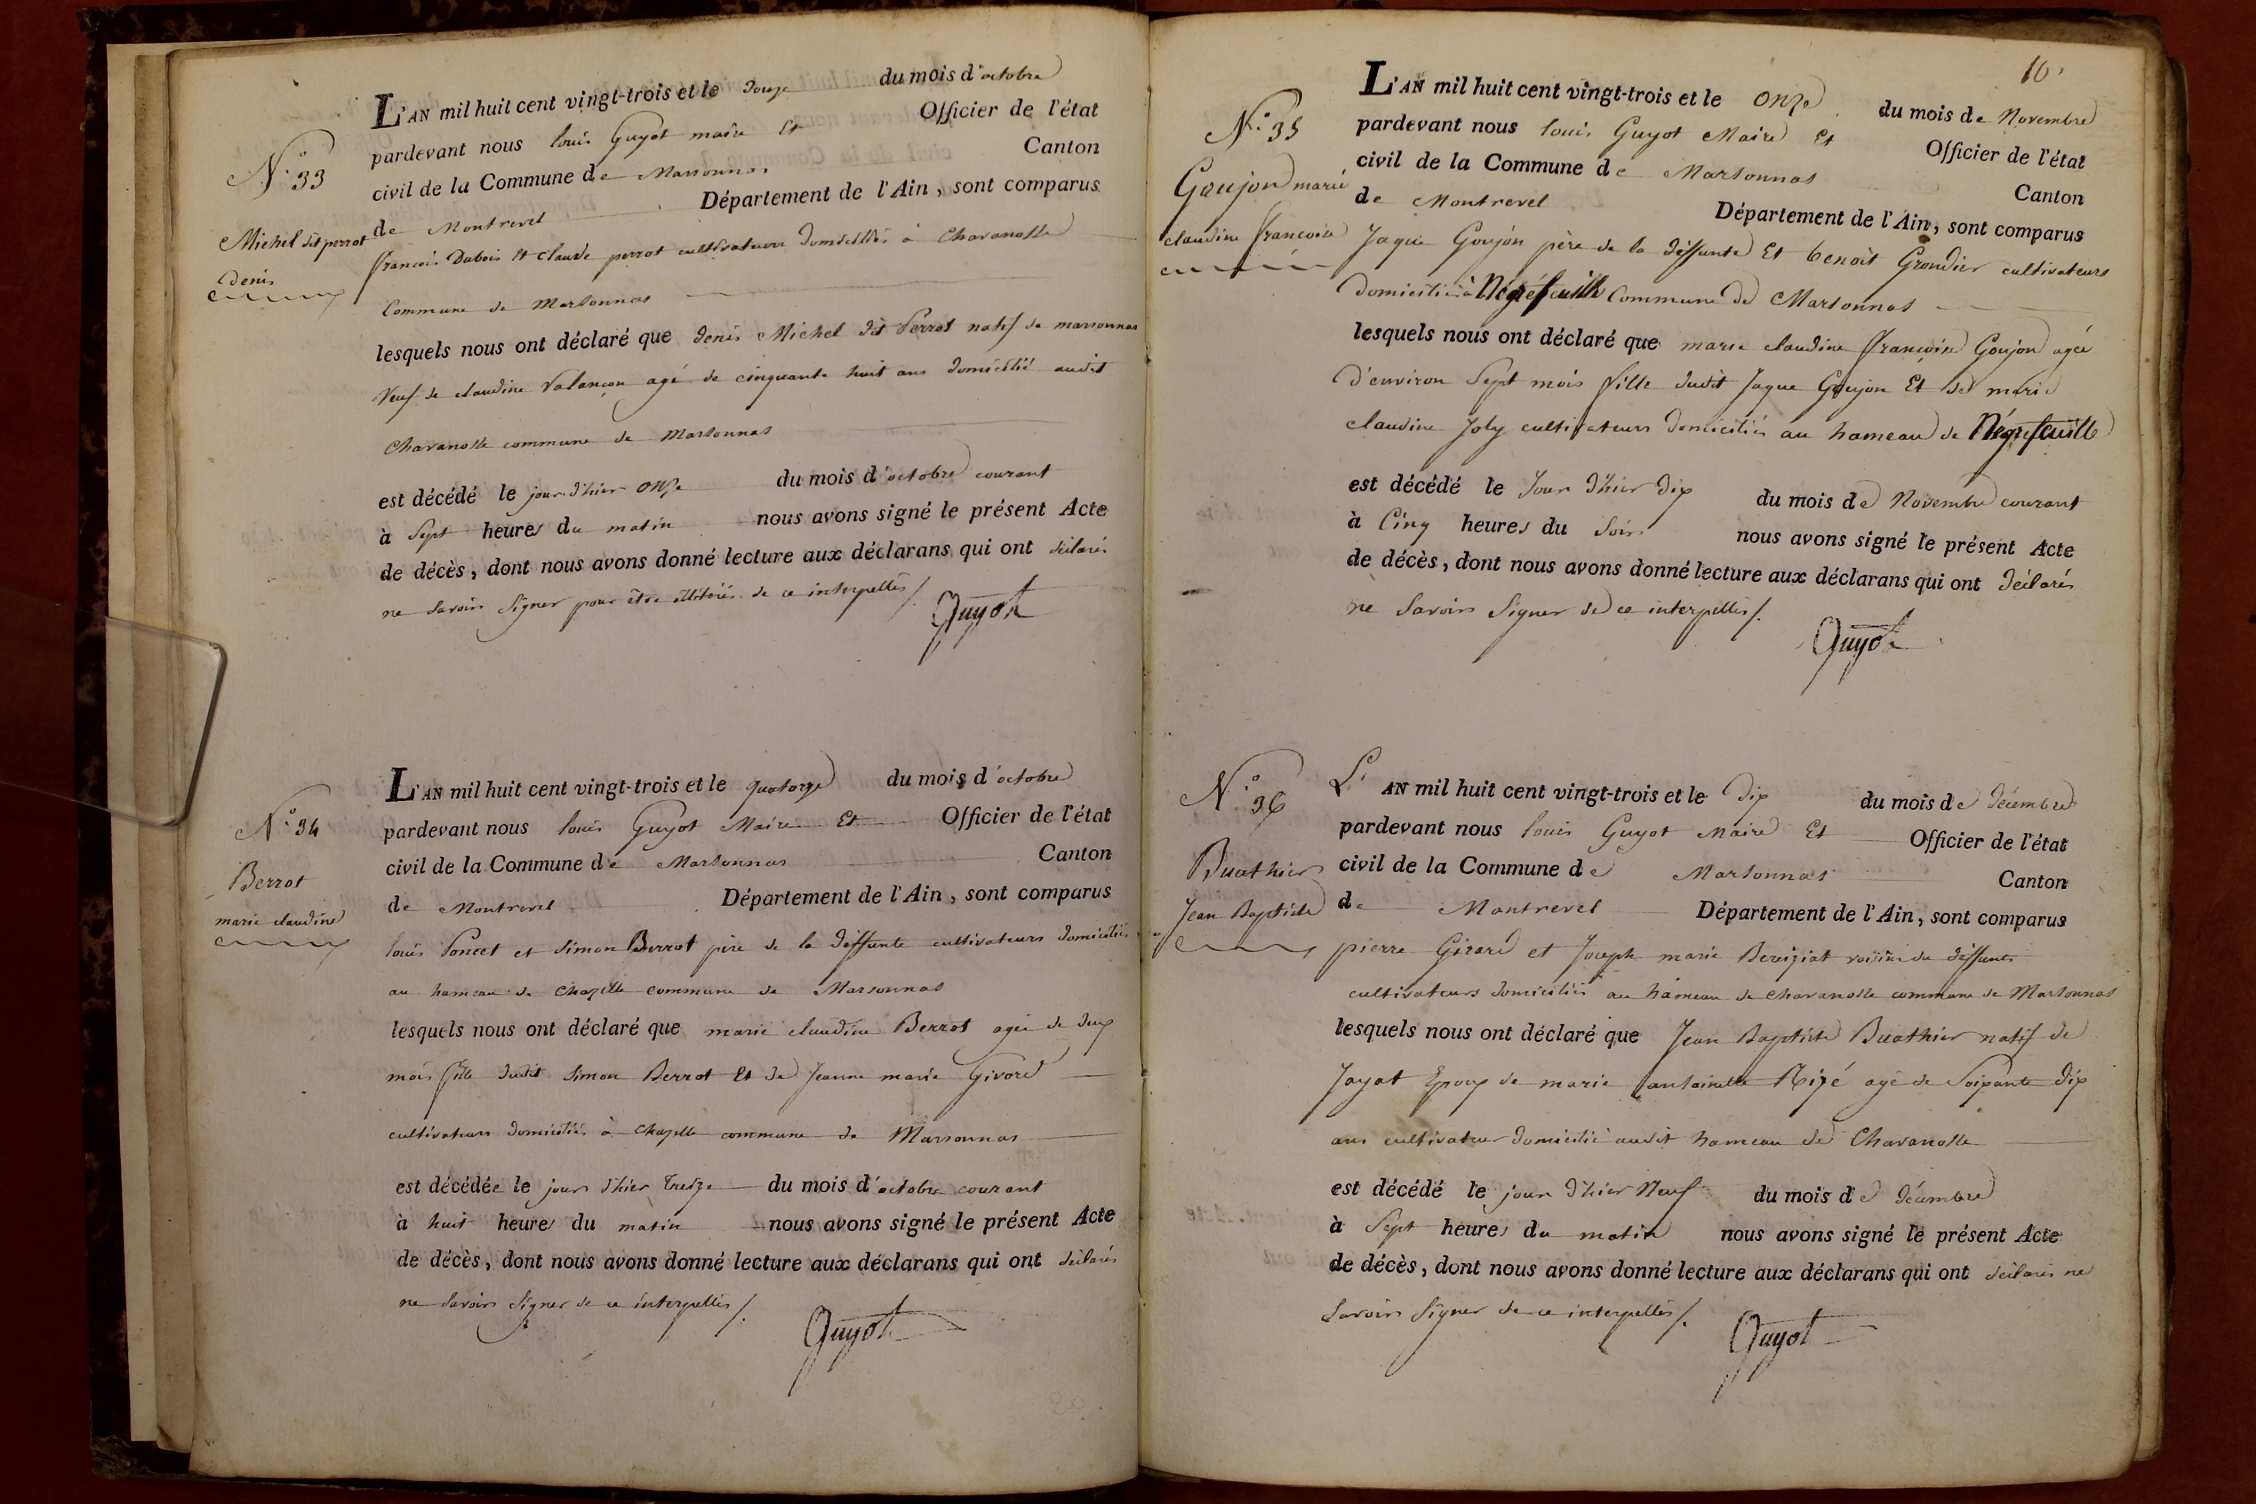 L'AN mil huit cent vingt-trois et le douze du mois d'octobre
pardevant nous louis Guyot maire Et Officier de l'état
civil de la Commune de Marsonnas Canton
de Montrevel Département de l'Ain, sont comparus
françois Dubois Et claude perrot cultivateurs domiciliés à Chavanosse
Commune de Marsonnas
lesquels nous ont déclaré que denis Michel dit Perrot natif de marsonnas
Veuf de claudine Valançon agé de cinquante huit ans domicilié audit
Chavanosse commune de Marsonnas
est décédé le jour d'hier onze du mois d'octobre courant
à Sept heures du matin nous avons signé le présent Acte
de décès, dont nous avons donné lecture aux déclarans qui ont déclarés
ne Savoir Signer pour être illitérés de ce interpellés /.
Guyot
N.° 33
Michel dit perrot
denis
L'AN mil huit cent vingt-trois et le quatorze du mois d'octobre
pardevant nous louis Guyot Maire Et Officier de l'état
civil de la Commune de Marsonnas Canton
de Montrevel Département de l'Ain, sont comparus
louis Poncet et Simon Berrot père de la deffunte cultivateurs domiciliés
au hameau de Chapelle commune de Marsonnas
lesquels nous ont déclaré que marie claudine Berrot agée de deux
mois fille dudit Simon Berrot Et de Jeanne marie Givord
cultivateurs domiciliés à Chapelle commune de Marsonnas
est décédée le jour d'hier treize du mois d'octobre courant
à huit heures du matin nous avons signé le présent Acte
de décès, dont nous avons donné lecture aux déclarans qui ont déclarés
ne Savoir Signer de ce interpellés /.
Guyot
N.° 34
Berrot
marie claudine
10.
L'AN mil huit cent vingt-trois et le onze du mois de Novembre
pardevant nous louis Guyot Maire Et Officier de l'état
civil de la Commune de Marsonnas Canton
de Montrevel Département de l'Ain, sont comparus
Jaque Goujon père de la deffunte Et benoit Grondier cultivateurs
domiciliés à Négrefeuille Commune de Marsonnas
lesquels nous ont déclaré que marie claudine françoise Goujon agée
d'environ Sept mois fille dudit Jaque Goujon Et de marie
claudine Joly cultivateurs domiciliés au hameau de Négrefeuille
est décédé le Jour d'hier dix du mois de Novembre courant
à Cinq heures du Soir nous avons signé le présent Acte
de décès, dont nous avons donné lecture aux déclarans qui ont déclarés
ne Savoir Signer de ce interpellés /.
Guyot
N.° 35
Goujon marie
claudine françoise
L'AN mil huit cent vingt-trois et le dix du mois de décembre
pardevant nous louis Guyot Maire Et Officier de l'état
civil de la Commune de Marsonnas Canton
de Montrevel Département de l'Ain, sont comparus
pierre Girard et Joseph marie Bereiziat voisins du deffunt
cultivateurs domiciliés au hameau de Chavanosse commune de Marsonnas
lesquels nous ont déclaré que Jean Baptiste Buathier natif de
Jayat Epoux de marie antoinette agé de Soixante dix
ans cultivateur domicilié audit hameau de Chavanosse
est décédé le jour d'hier Neuf du mois de décembre
à Sept heures du matin nous avons signé le présent Acte
de décès, dont nous avons donné lecture aux déclarans qui ont déclarés ne
Savoir Signer de ce interpellés /.
Guyot
N.° 36
Buathier
Jean Baptiste